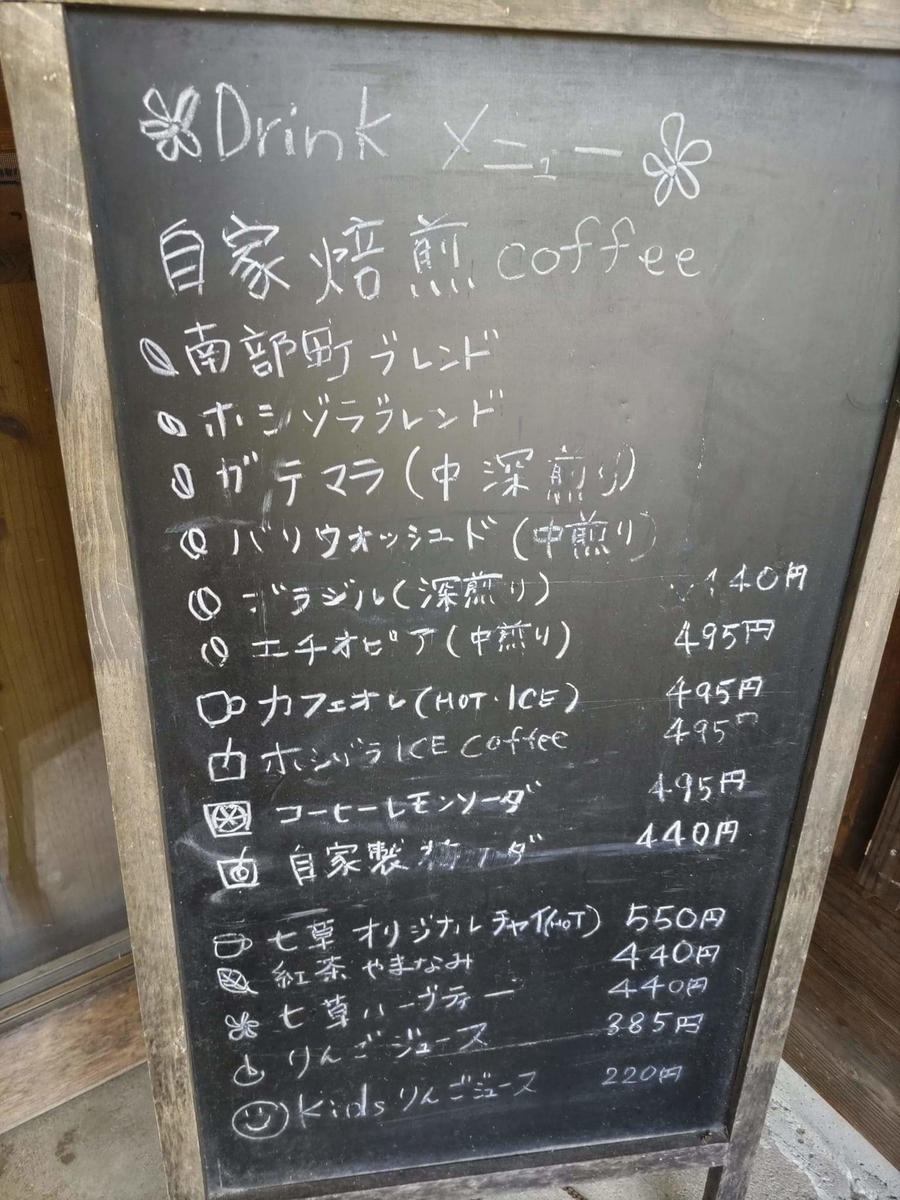 Drink メニュー
自家焙煎 coffee
南部町ブレンド
ホシゾラブレンド
ガテマラ(中深煎り)
バリウォッシュド(中煎り)
ブラジル(深煎り) 440円
エチオピア(中煎り) 495円
カフェオレ(HOT・ICE) 495円
ホシゾラ ICE Coffee 495円
コーヒーレモンソーダ 495円
自家製 ダ 440円
七草 オリジナル チャイ(HOT) 550円
紅茶 やまなみ 440円
七草ハーブティー 440円
りんごジュース 385円
Kids りんごジュース 220円